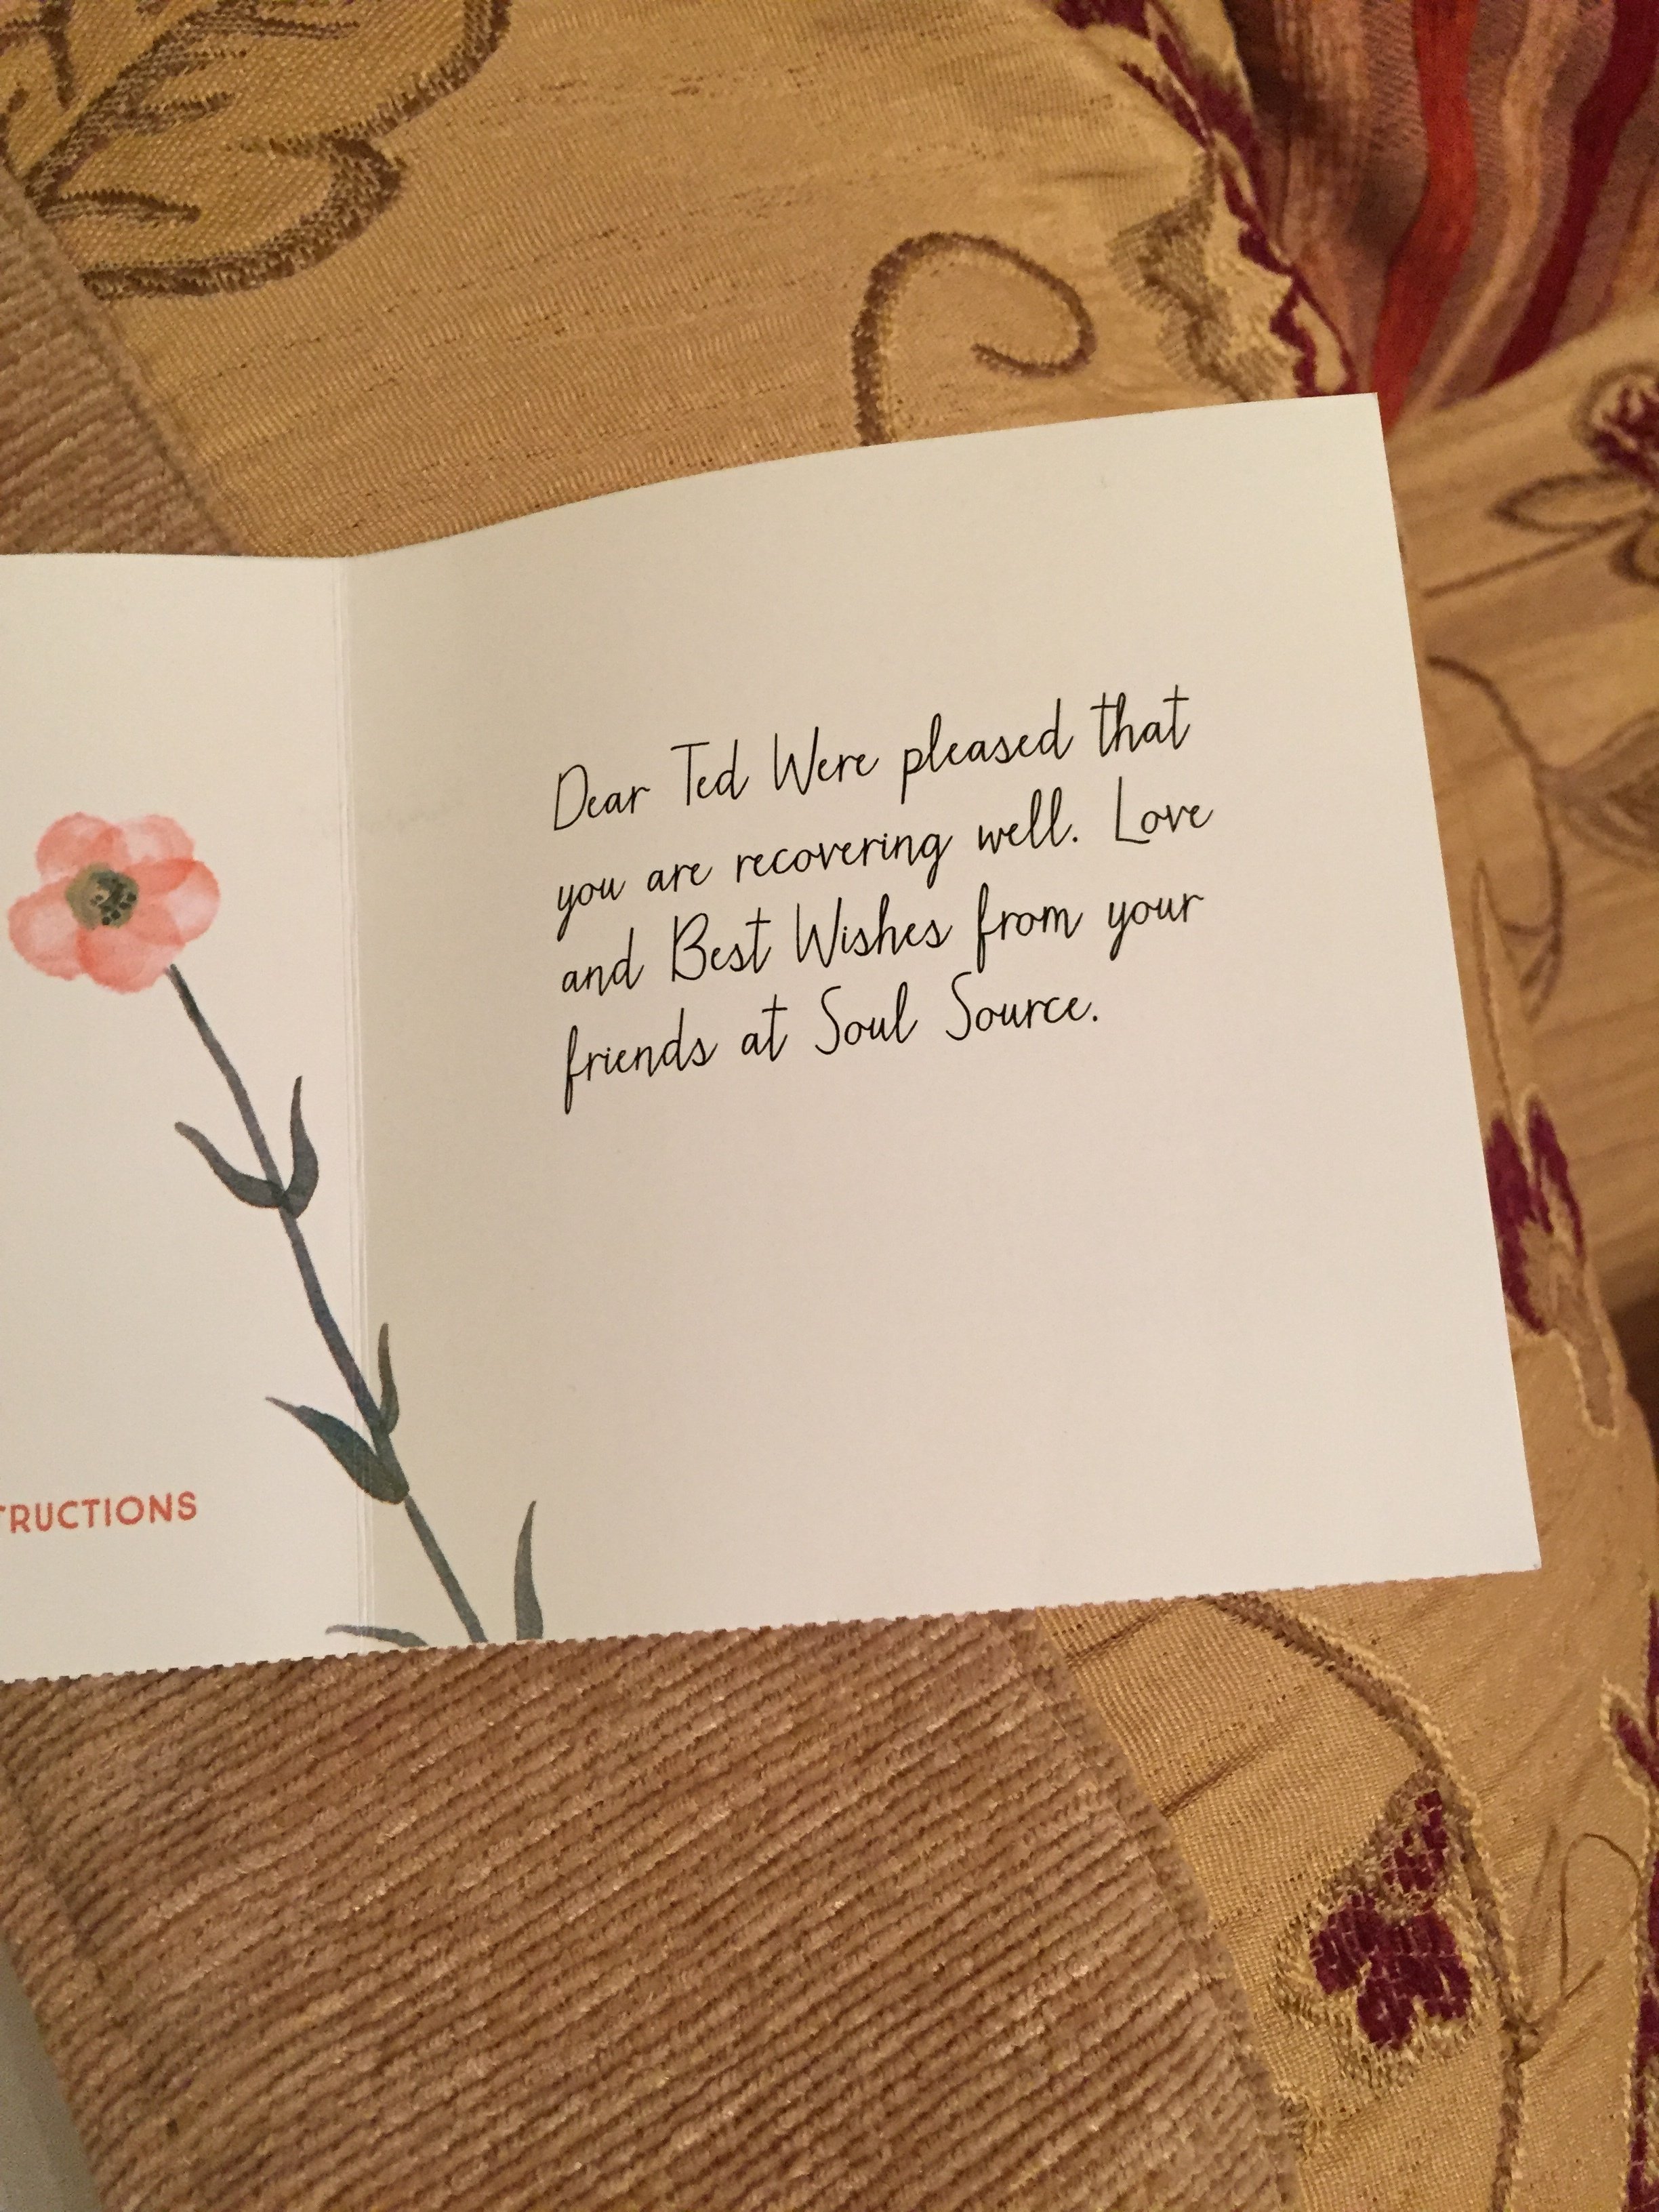 Dear Ted Were pleased that
you are recovering well. Love
and Best Wishes from your
friends at Soul Source.
TRUCTIONS